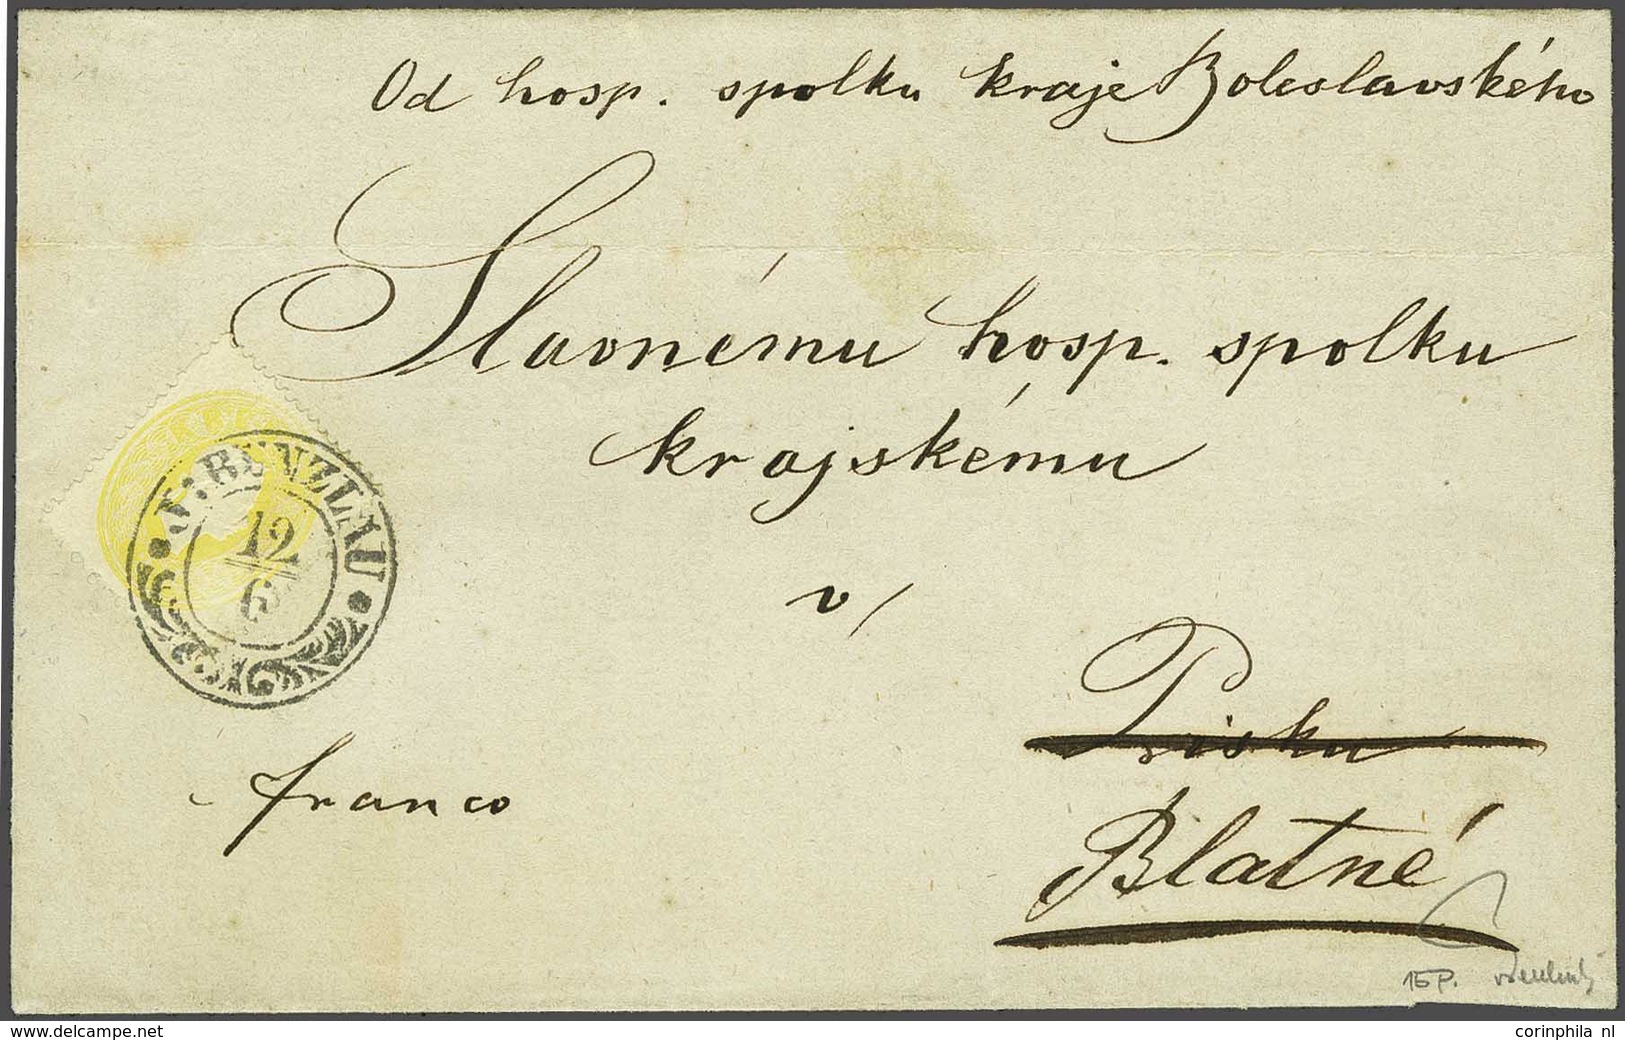 Od hosp. spolku kraje Boleslavského
Slavnému hosp. spolku
krajskému
v/
J: BUNZLAU
12
6
Pisku
franco
Blatné
15P.
www.delcampe.net
corinphila nl